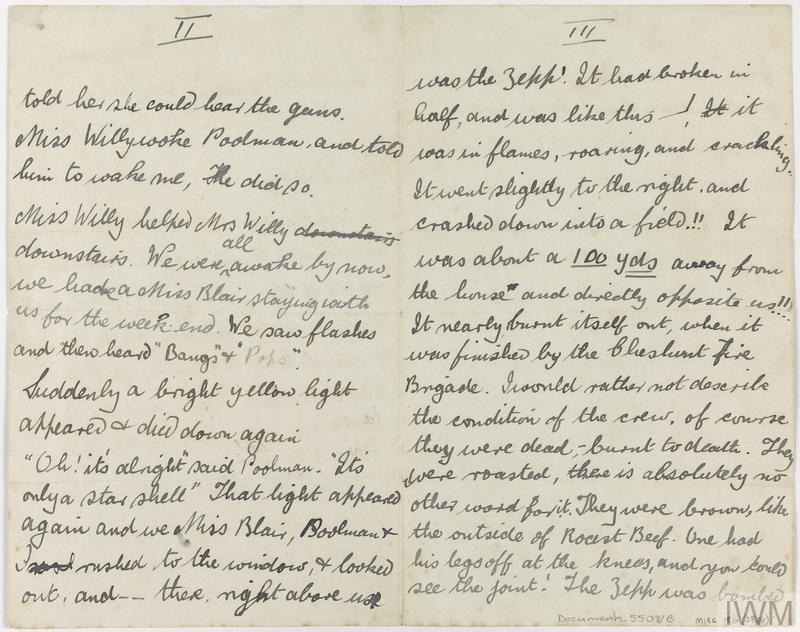 II
told her she could hear the guns.
Miss Willy woke Poolman, and told
him to wake me, He did so.
Miss Willy helped Mrs Willy downstairs
downstairs. We were all awake by now,
we had a Miss Blair staying with
us for the week-end. We saw flashes
and then heard "Bangs" & "Pops".
Suddenly a bright yellow light
appeared & died down again
"Oh! it's alright" said Poolman. "It's
only a star shell" That light appeared
again and we Miss Blair, Poolman &
I rushed to the window, & looked
out, and -- there, right above us
III
was the Zepp! It had broken in
half, and was like this — ! It it
was in flames, roaring, and crackling.
It went slightly to the right, and
crashed down into a field!!! It
was about a 100 yds away from
the house and directly opposite us!!!
It nearly burnt itself out, when it
was finished by the Cheshunt Fire
Brigade. I would rather not describe
the condition of the crew, of course
they were dead, - burnt to death. They
were roasted, there is absolutely no
other word for it. They were brown, like
the outside of Roast Beef. One had
his legs off at the knees, and you could
see the joint! The Zepp was bombed
Documents. 5508/B
IWM